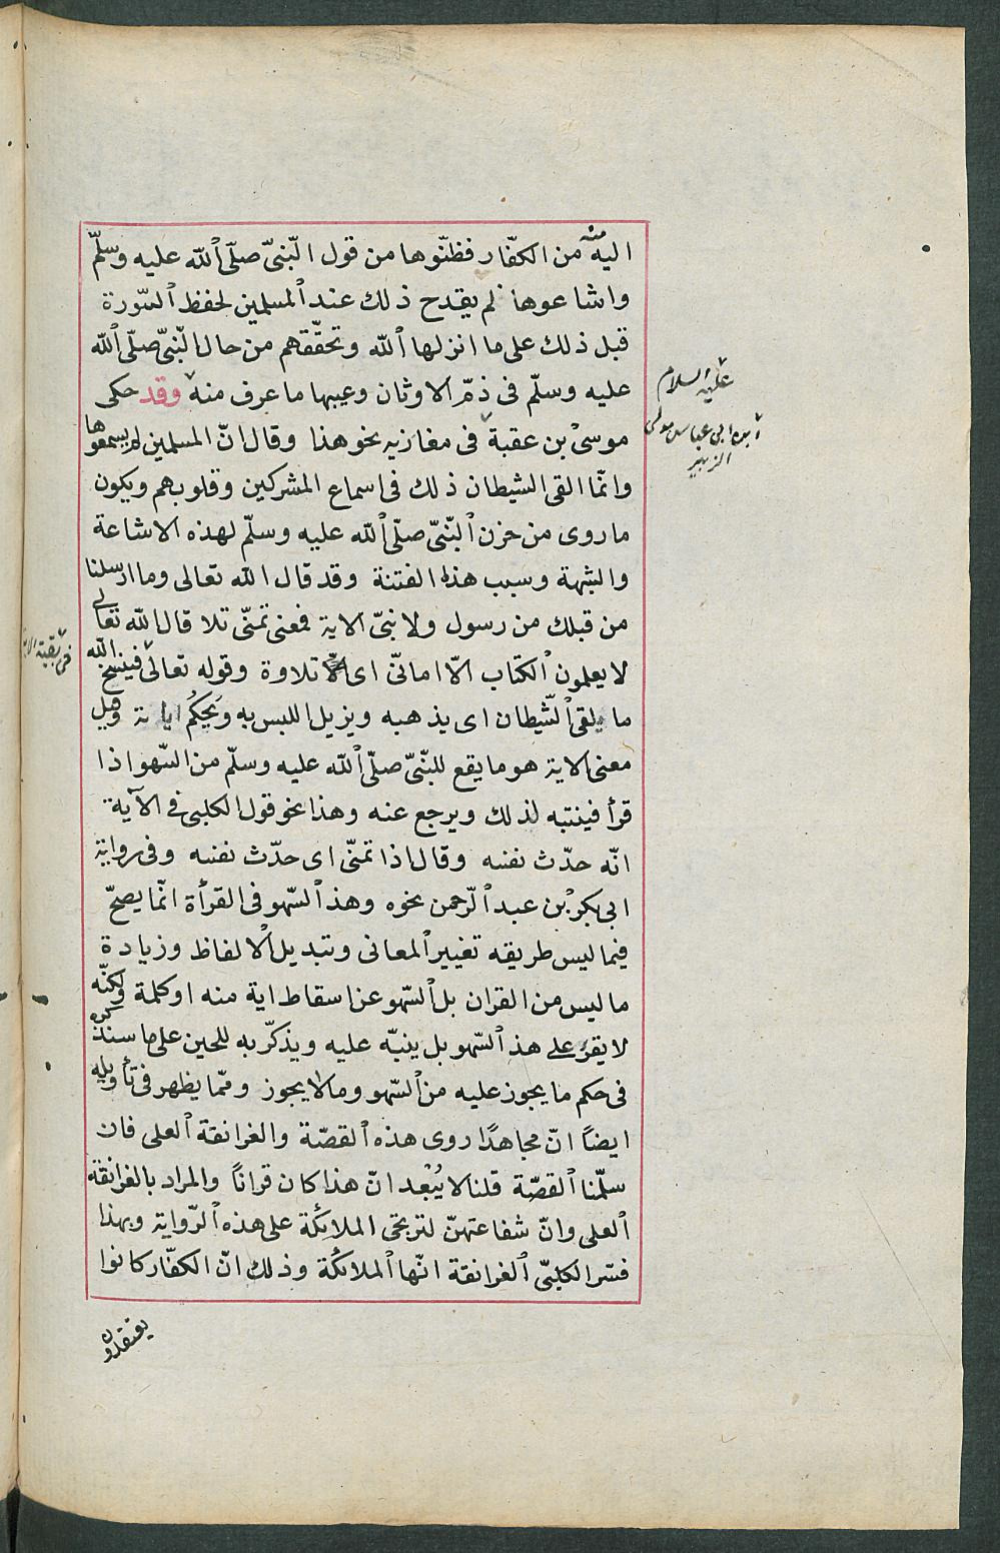 اليه منه من الكفّار فظنّوها من قول النّبىّ صلّى الله عليه وسلّم
واشاعوها لم يقدح ذلك عند المسلمين لحفظ السّورة
قبل ذلك على ما انزلها الله وتحقّقهم من حال النّبىّ صلّى الله
عليه وسلّم فى ذمّ الاوثان وعيبها ما عرف منه وقد حكى
عليه السلام
موسى بن عقبة فى مغازيه نحو هذا وقال انّ المسلمين لم يسمعوها
ابى عباس مولى
الزبير
وانّما القى الشيطان ذلك فى اسماع المشركين وقلوبهم ويكون
ما روى من حزن النّبىّ صلّى الله عليه وسلّم لهذه الاشاعة
والشبهة وسبب هذه الفتنة وقد قال الله تعالى وما ارسلنا
من قبلك من رسول ولا نبىّ الاية فمعنى تمنّى تلا قال الله تعالى
لا يعلمون الكتاب الّا امانىّ اى تلاوة وقوله تعالى فينسخ الله
ما يلقى الشّيطان اى يذهبه ويزيل اللبس به ويحكم اياته وقيل
معنى الاية هو ما يقع للنّبىّ صلّى الله عليه وسلّم من السّهو اذا
قرأ فينتبه لذلك ويرجع عنه وهذا نحو قول الكلبى فى الآية
انّه حدّث نفسه وقال اذا تمنّى اى حدّث نفسه وفى رواية
ابى بكر بن عبد الرّحمن نحوه وهذ السّهو فى القرأة انّما يصحّ
فيما ليس طريقه تغيير المعانى وتبديل الالفاظ وزيادة
ما ليس من القران بل السّهو عن اسقاط اية منه او كلمة ولكنّه
لا يقرّ على هذ السّهو بل ينبّه عليه ويذكّر به للحين على ما سنذكره
فى حكم ما يجوز عليه من السّهو وما لا يجوز وممّا يظهر فى تأويله
ايضاً انّ مجاهدًا روى هذه القصّة والغرانقة العلى فان
سلّمنا القصّة قلنا لا يُبْعد انّ هذا كان قراناً والمراد بالغرانقة
العلى وانّ شفاعتهنّ لترتجى الملائكة على هذه الرّواية وبهذا
فسّر الكلبىّ الغرانقة انّها الملائكة وذلك انّ الكفّار كانوا
يعتقدون